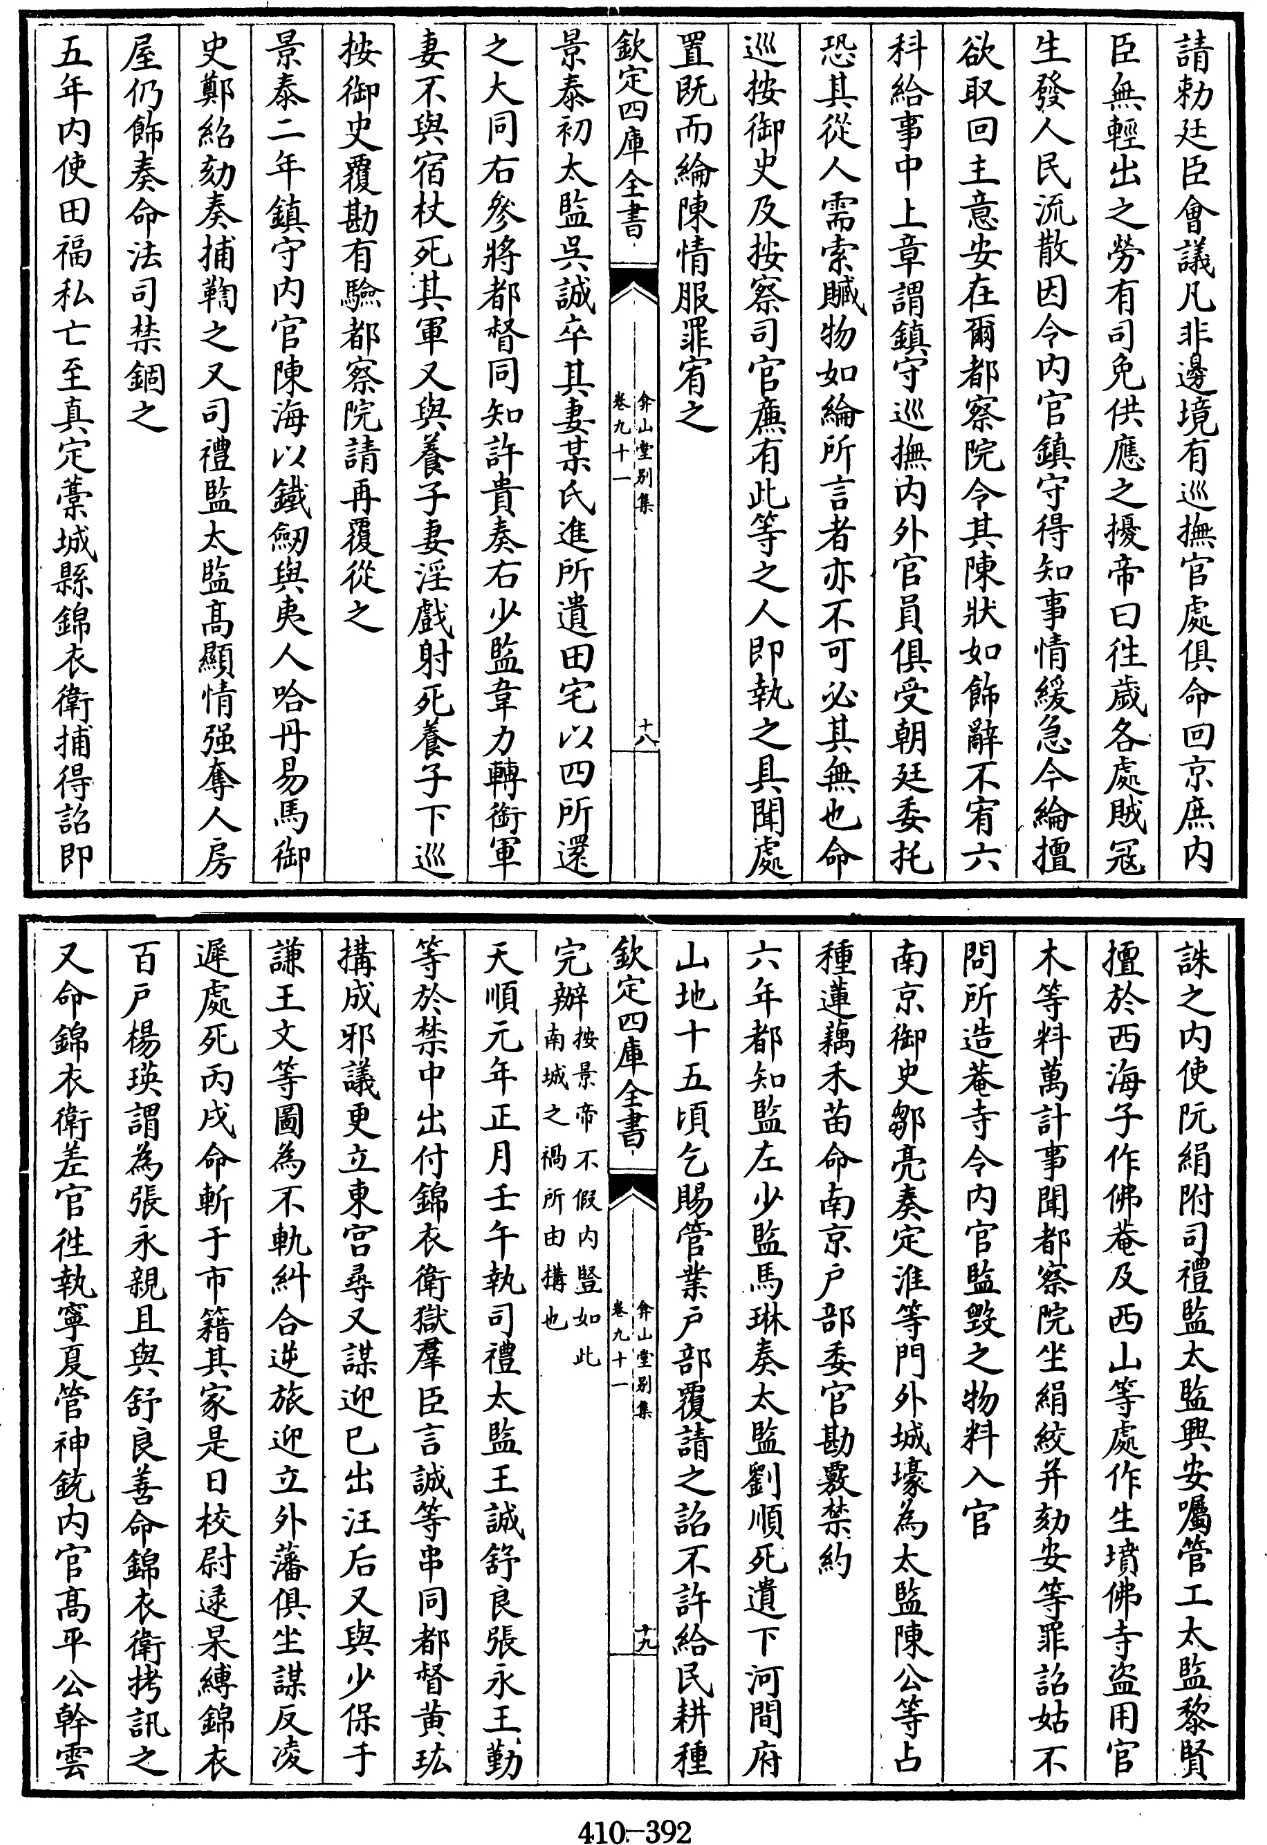 請勅廷臣會議凡非邊境有巡撫官處俱命回京庶内
臣無輕出之勞有司免供應之擾帝曰徃歲各處賊冦
生發人民流散因令内官鎮守得知事情緩急今綸擅
欲取回主意安在爾都察院令其陳狀如飾辭不宥六
科給事中上章謂鎮守巡撫内外官員俱受朝廷委托
恐其從人需索贓物如綸所言者亦不可必其無也命
巡按御史及按察司官亷有此等之人即執之具聞處
置既而綸陳情服罪宥之
欽定四庫全書
弇山堂别集
卷九十一
十八
景泰初太監吳誠卒其妻某氏進所遺田宅以四所還
之大同右參將都督同知許貴奏右少監韋力轉銜軍
妻不與宿杖死其軍又與養子妻淫戲射死養子下巡
按御史覆勘有驗都察院請再覆從之
景泰二年鎮守内官陳海以鐵劒與夷人哈丹易馬御
史鄭紹劾奏捕鞫之又司禮監太監髙顯情强奪人房
屋仍飾奏命法司禁錮之
五年内使田福私亡至真定藁城縣錦衣衛捕得詔即
誅之内使阮絹附司禮監太監興安囑管工太監黎賢
擅於西海子作佛菴及西山等處作生墳佛寺盗用官
木等料萬計事聞都察院坐絹絞并劾安等罪詔姑不
問所造菴寺令内官監毁之物料入官
南京御史鄒亮奏定淮等門外城壕為太監陳公等占
種蓮藕禾苗命南京户部委官勘覈禁約
六年都知監左少監馬琳奏太監劉順死遺下河間府
山地十五頃乞賜管業户部覆請之詔不許給民耕種
欽定四庫全書
弇山堂别集
卷九十一
十九
完辦按景帝不假内豎如此南城之禍所由搆也
天順元年正月壬午執司禮太監王誠舒良張永王勤
等於禁中出付錦衣衛獄羣臣言誠等串同都督黄玹
搆成邪議更立東宫尋又謀迎已出汪后又與少保于
謙王文等圖為不軌糾合逆旅迎立外藩俱坐謀反凌
遲處死丙戌命斬于市籍其家是日校尉逯杲縛錦衣
百户楊瑛謂為張永親且與舒良善命錦衣衛拷訊之
又命錦衣衛差官徃執寧夏管神銃内官髙平公幹雲
410-392